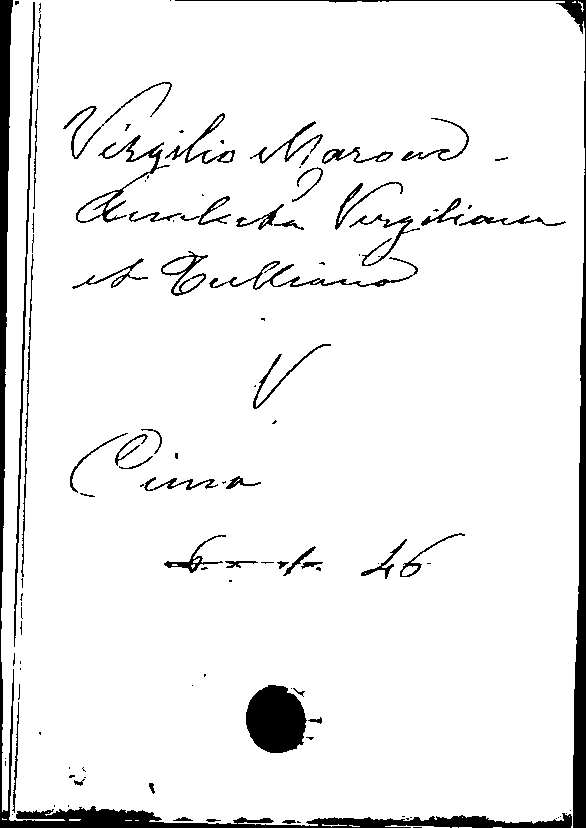 Virgilio Marone -
Analecta Virgiliana
et Tulliana
V
Cima
46